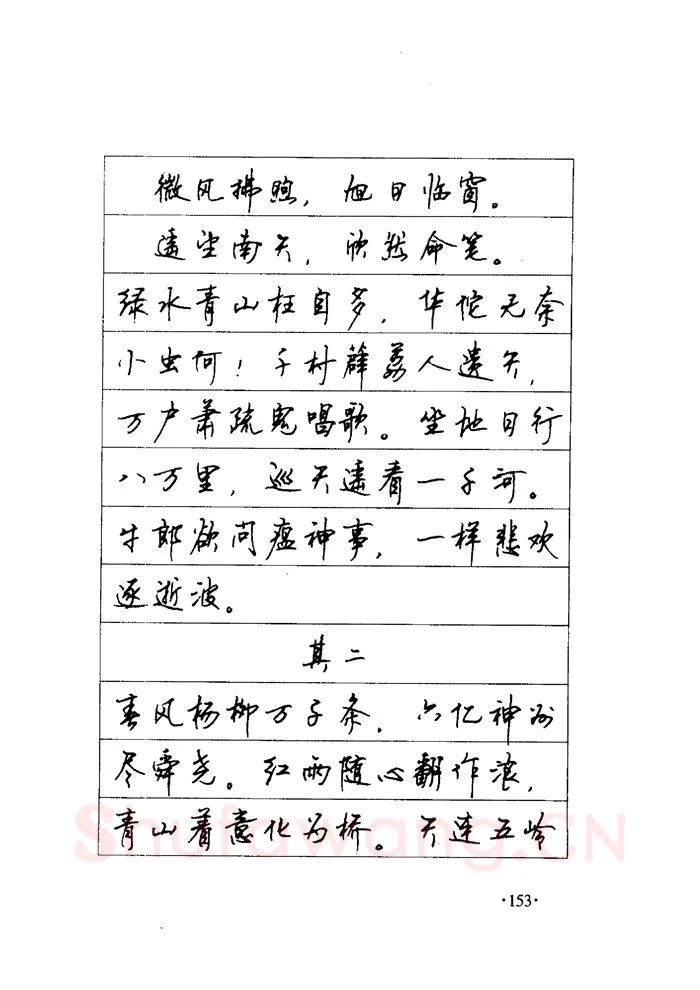 微风拂煦，旭日临窗。
遥望南天，欣然命笔。
绿水青山枉自多，华佗无奈
小虫何！千村薜荔人遗矢，
万户萧疏鬼唱歌。坐地日行
八万里，巡天遥看一千河。
牛郎欲问瘟神事，一样悲欢
逐逝波。
其二
春风杨柳万千条，六亿神州
尽舜尧。红雨随心翻作浪，
青山着意化为桥。天连五岭
Shufawang.CN
·153·